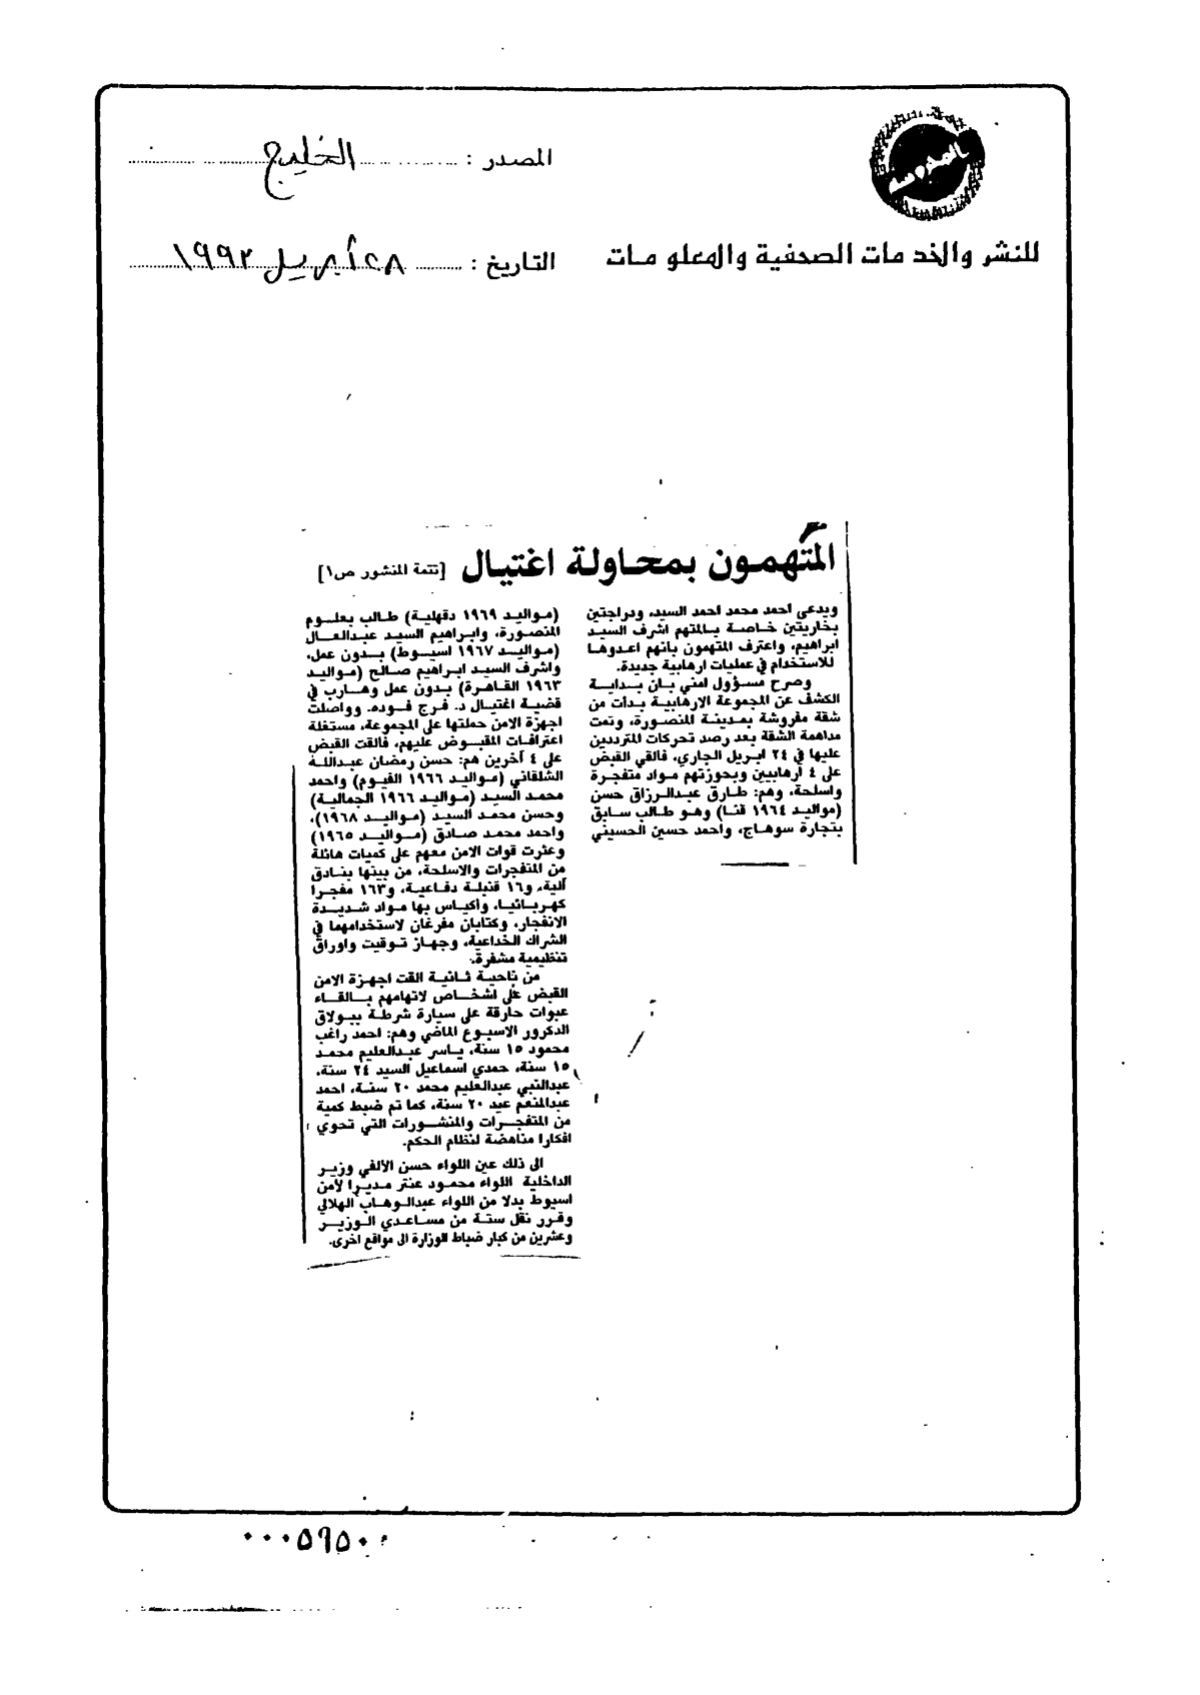 المحروسة
للنشر والخدمات الصحفية والمعلومات
المصدر : الخليج
التاريخ : ٢٨ أبريل ١٩٩٣
المتهمون بمحاولة اغتيال [تتمة المنشور ص١]
ويدعى احمد محمد احمد السيد، ودراجتين
بخاريتين خاصة بالمتهم اشرف السيد
ابراهيم، واعترف المتهمون بانهم اعدوها
للاستخدام في عمليات ارهابية جديدة.
وصرح مسؤول امني بان بداية
الكشف عن المجموعة الارهابية بدأت من
شقة مفروشة بمدينة المنصورة، وتمت
مداهمة الشقة بعد رصد تحركات المترددين
عليها في ٢٤ ابريل الجاري، فالقي القبض
على ٤ ارهابيين وبحوزتهم مواد متفجرة
واسلحة، وهم: طارق عبدالرزاق حسن
(مواليد ١٩٦٤ قنا) وهو طالب سابق
بتجارة سوهاج، واحمد حسين الحسيني
(مواليد ١٩٦٩ دقهلية) طالب بعلوم
المنصورة، وابراهيم السيد عبدالعال
(مواليد ١٩٦٧ اسيوط) بدون عمل،
واشرف السيد ابراهيم صالح (مواليد
١٩٦٣ القاهرة) بدون عمل وهارب في
قضية اغتيال د. فرج فوده. وواصلت
اجهزة الامن حملتها على المجموعة، مستغلة
اعترافات المقبوض عليهم، فالقت القبض
على ٤ آخرين هم: حسن رمضان عبداللة
الشلقاني (مواليد ١٩٦٦ الفيوم) واحمد
محمد السيد (مواليد ١٩٦٦ الجمالية)
وحسن محمد السيد (مواليد ١٩٦٨)،
واحمد محمد صادق (مواليد ١٩٦٥)
وعثرت قوات الامن معهم على كميات هائلة
من المتفجرات والاسلحة، من بينها بنادق
آلية، و١٦ قنبلة دفاعية، و١٦٣ مفجرا
كهربائيا، واكياس بها مواد شديدة
الانفجار، وكتابان مفرغان لاستخدامهما في
الشراك الخداعية، وجهاز توقيت واوراق
تنظيمية مشفرة.
من ناحية ثانية القت اجهزة الامن
القبض على اشخاص لاتهامهم بالقاء
عبوات حارقة على سيارة شرطة ببولاق
الدكرور الاسبوع الماضي وهم: احمد راغب
محمود ١٥ سنة، ياسر عبدالعليم محمد
١٥ سنة، حمدي اسماعيل السيد ٢٤ سنة،
عبدالنبي عبدالعليم محمد ٢٠ سنة، احمد
عبدالمنعم عيد ٢٠ سنة، كما تم ضبط كمية
من المتفجرات والمنشورات التي تحوي
افكارا مناهضة لنظام الحكم.
الى ذلك عين اللواء حسن الالفي وزير
الداخلية اللواء محمود عنتر مديرا لامن
اسيوط بدلا من اللواء عبدالوهاب الهلالي
وقرر نقل ستة من مساعدي الوزير
وعشرين من كبار ضباط الوزارة الى مواقع اخرى.